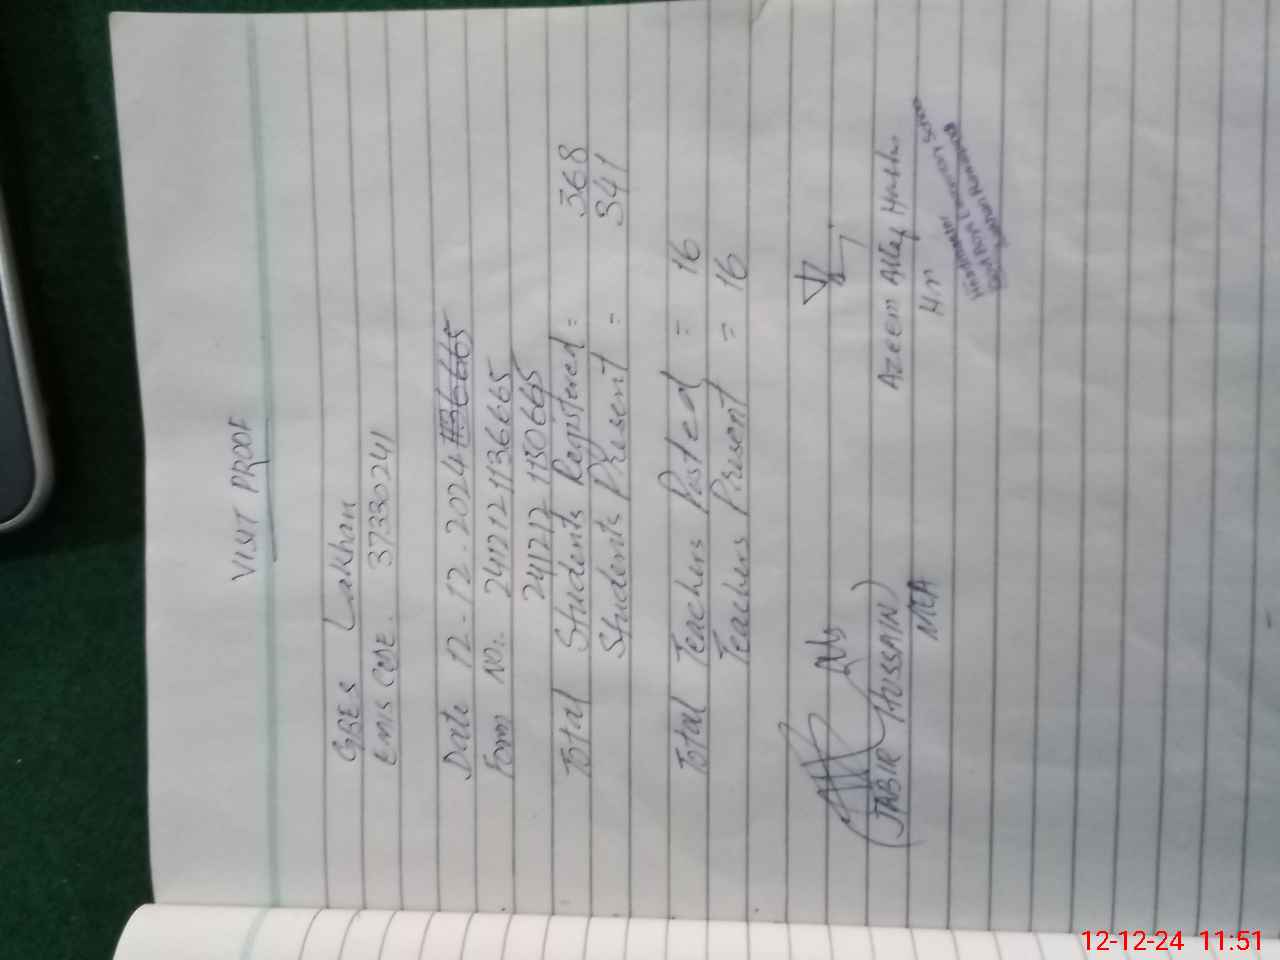 VISIT PROOF
GBES Lakhan
EMIS CODE. 37330241
Date 12-12-2024
Form NO. 2412121136665
241212 1130665
Total Students Registered = 368
Students Present = 341
Total Teachers Posted = 16
Teachers Present = 16
(JABIR HUSSAIN)
MEA
Azeem
H.M
Headmaster
Govt Boys Elementary School
12-12-24 11:51